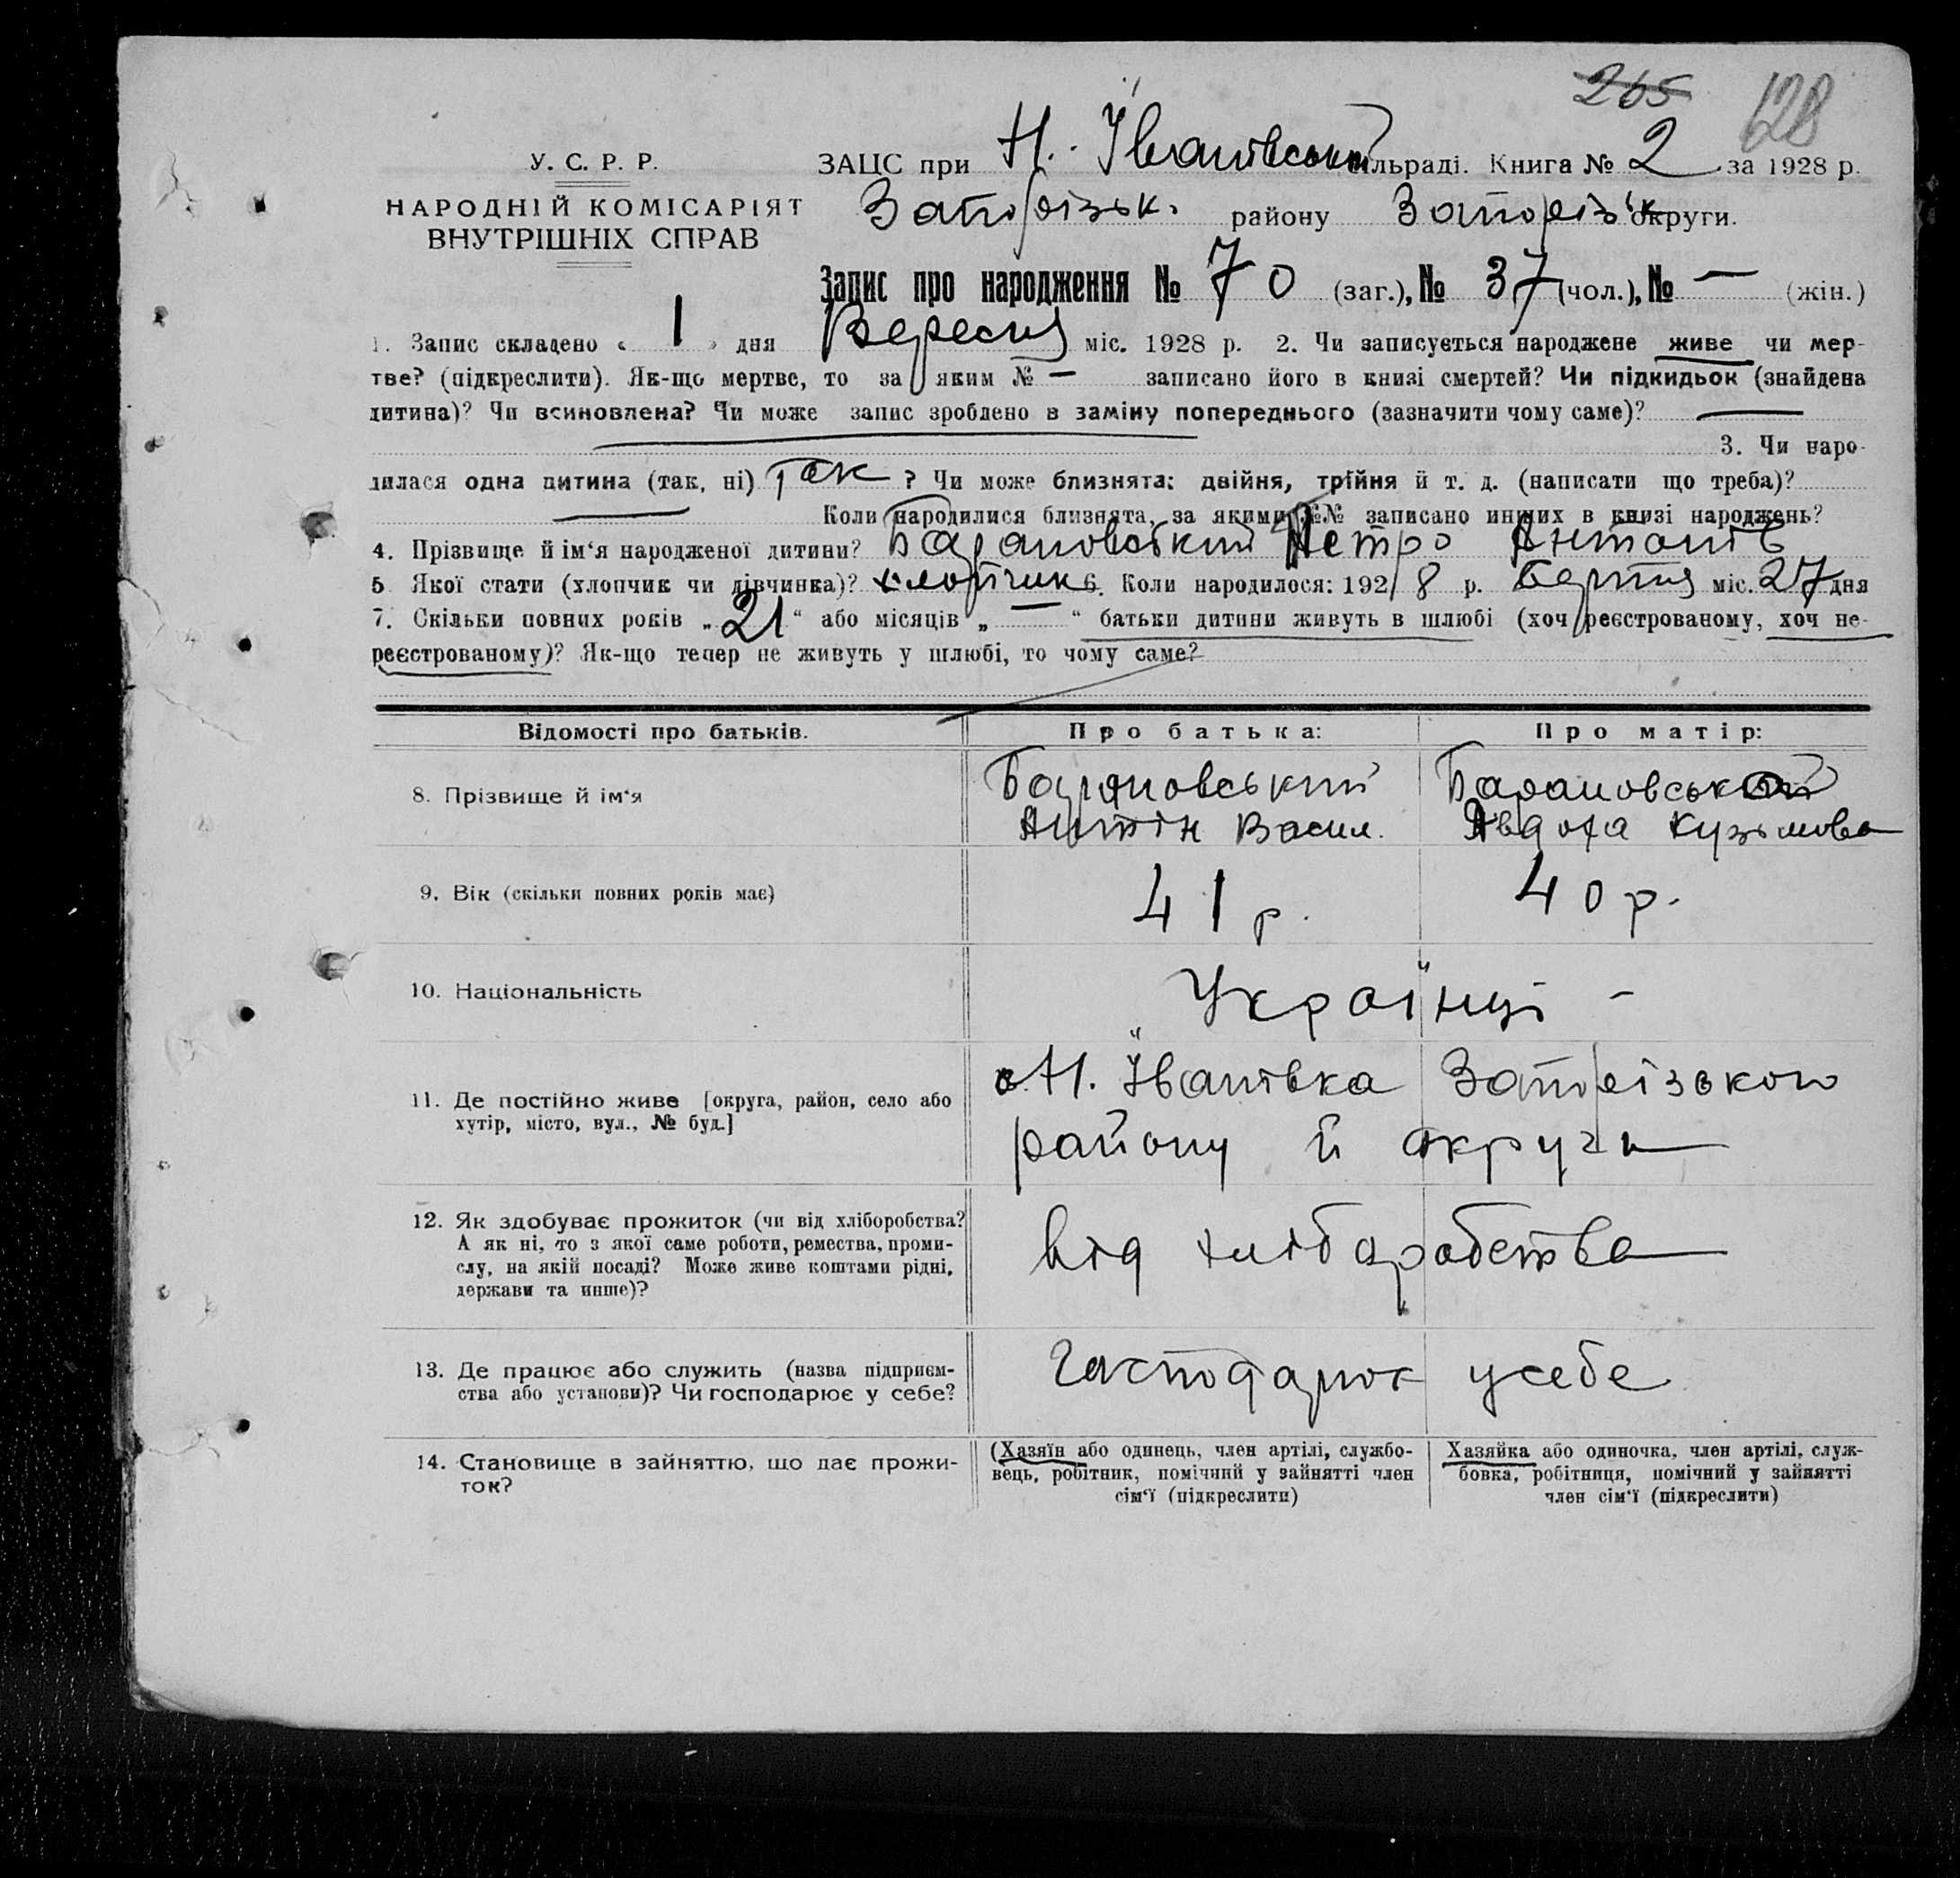 265 128
У. С. Р. Р.
НАРОДНІЙ КОМІСАРІЯТ
ВНУТРІШНІХ СПРАВ
ЗАЦС при Н. Івановській сільраді. Книга № 2 за 1928 р.
Запорізьк. району Запоріз'к округи.
Запис про народження № 70 (заг.), № 37 (чол.), № — (жін.)
1. Запис складено « 1 » дня Вересня міс. 1928 р. 2. Чи записується народжене живе чи мер-
тве? (підкреслити). Як-що мертве, то за яким № — записано його в книзі смертей? Чи підкидьок (знайдена
дитина)? Чи всиновлена? Чи може запис зроблено в заміну попереднього (зазначити чому саме)? —
3. Чи наро-
дилася одна дитина (так, ні) Так ? Чи може близнята: двійня, трійня й т. д. (написати що треба)?
— Коли народилися близнята, за якими №№ записано инших в книзі народжень?
4. Прізвище й ім'я народженої дитини? Барановський Петро Антонів
5 Якої стати (хлопчик чи дівчинка)? хлопчик 6. Коли народилося: 1928 р. міс. 27 дня
7. Скільки повних років „ 21 “ або місяців „ — “ батьки дитини живуть в шлюбі (хоч реєстрованому, хоч не-
реєстрованому)? Як-що тепер не живуть у шлюбі, то чому саме?
Відомості про батьків. Про батька: Про матір:
8. Прізвище й ім'я Барановський Барановська
Антін Васил. Явдоха Кузьмова
9. Вік (скільки повних років має) 41 р. 40 р.
10. Національність Українці —
11. Де постійно живе [округа, район, село або
хутір, місто, вул., № буд.]
с. Н. Іванівка Запорізького
району й округи
12. Як здобуває прожиток (чи від хліборобства?
А як ні, то з якої саме роботи, ремества, проми-
слу, на якій посаді? Може живе коштами рідні,
держави та инше)?
від хліборобства
13. Де працює або служить (назва підприєм-
ства або установи)? Чи господарює у себе?
усебе
14. Становище в зайняттю, що дає прожи-
ток?
(Хазяїн або одинець, член артілі, службо-
вець, робітник, помічний у зайнятті член
сім'ї (підкреслити)
Хазяйка або одиночка, член артілі, служ-
бовка, робітниця, помічний у зайнятті
член сім'ї (підкреслити)